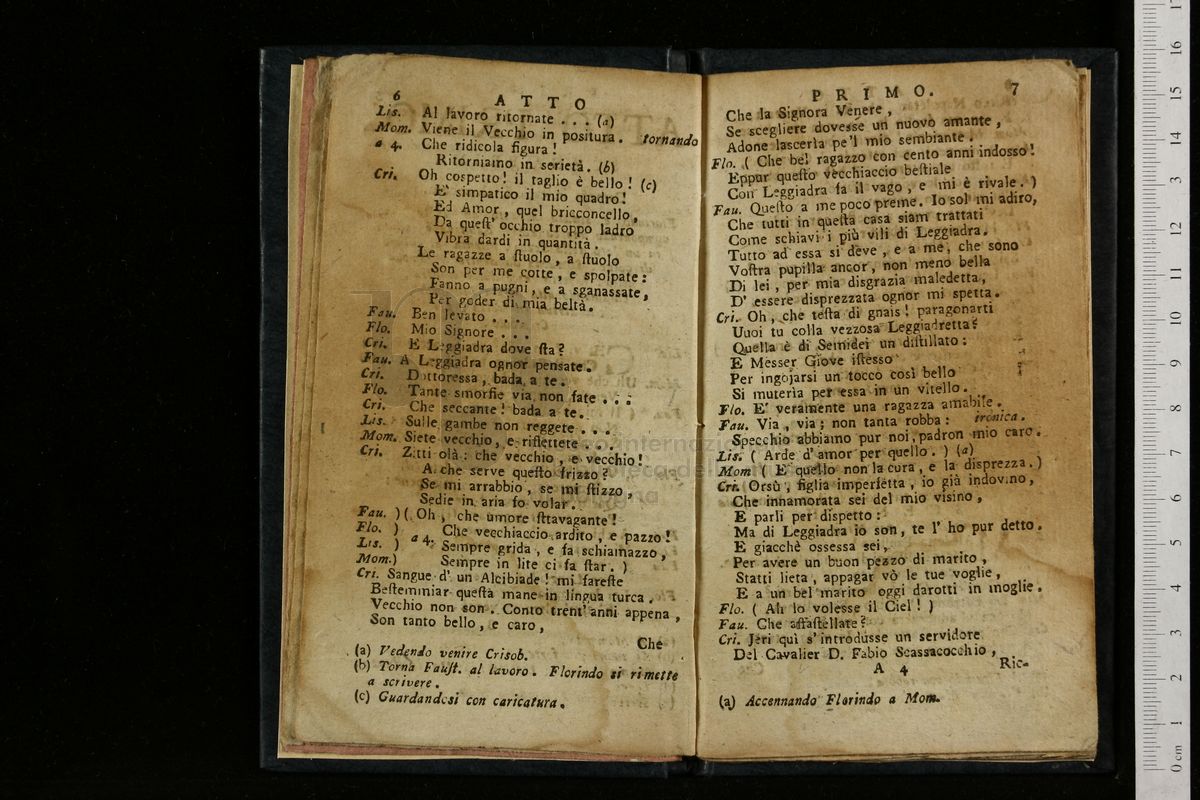 6
ATTO
Lis. Al lavoro ritornate . . . (a)
Mom. Viene il Vecchio in positura. tornando
a 4. Che ridicola figura!
Ritorniamo in serietà. (b)
Cri. Oh cospetto! il taglio è bello! (c)
E' simpatico il mio quadro!
Ed Amor, quel bricconcello,
Da quest' occhio troppo ladro
Vibra dardi in quantità.
Le ragazze a stuolo, a stuolo
Son per me cotte, e spolpate:
Fanno a pugni, e a sganassate,
Per goder di mia beltà.
Fau. Ben levato . . .
Flo. Mio Signore . . .
Cri. E Leggiadra dove sta?
Fau. A Leggiadra ognor pensate.
Cri. Dottoressa, bada a te.
Flo. Tante smorfie via non fate . . .
Cri. Che seccante! bada a te.
Lis. Sulle gambe non reggete . . .
Mom. Siete vecchio, e riflettete . . .
Cri. Zitti olà: che vecchio, e vecchio!
A che serve questo frizzo?
Se mi arrabbio, se mi stizzo,
Sedie in aria fo volar.
Fau. ) ( Oh, che umore stravagante!
Flo. ) a 4. Che vecchiaccio ardito, e pazzo!
Lis. ) Sempre grida, e fa schiamazzo,
Mom.) Sempre in lite ci fa star. )
Cri. Sangue d' un Alcibiade! mi fareste
Bestemmiar questa mane in lingua turca.
Vecchio non son. Conto trent' anni appena,
Son tanto bello, e caro,
Che
(a) Vedendo venire Crisob.
(b) Torna Faust. al lavoro. Florindo si rimette
a scrivere.
(c) Guardandosi con caricatura.
PRIMO. 7
Che la Signora Venere,
Se scegliere dovesse un nuovo amante,
Adone lasceria pe'l mio sembiante.
Flo. ( Che bel ragazzo con cento anni indosso!
Eppur questo vecchiaccio bestiale
Con Leggiadra fa il vago, e mi è rivale. )
Fau. Questo a me poco preme. Io sol mi adiro,
Che tutti in questa casa siam trattati
Come schiavi i più vili di Leggiadra.
Tutto ad essa si deve, e a me, che sono
Vostra pupilla ancor, non meno bella
Di lei, per mia disgrazia maledetta,
D' essere disprezzata ognor mi spetta.
Cri. Oh, che testa di gnais! paragonarti
Vuoi tu colla vezzosa Leggiadretta?
Quella è di Semidei un distillato:
E Messer Giove istesso
Per ingojarsi un tocco così bello
Si muteria per essa in un vitello.
Flo. E' veramente una ragazza amabile.
Fau. Via, via; non tanta robba: ironica.
Specchio abbiamo pur noi, padron mio caro.
Lis. ( Arde d'amor per quello. ) (a)
Mom ( E quello non la cura, e la disprezza. )
Cri. Orsù, figlia imperfetta, io già indovino,
Che innamorata sei del mio visino,
E parli per dispetto:
Ma di Leggiadra io son, te l' ho pur detto.
E giacchè ossessa sei,
Per avere un buon pezzo di marito,
Statti lieta, appagar vò le tue voglie,
E a un bel marito oggi darotti in moglie.
Flo. ( Ah lo volesse il Ciel! )
Fau. Che affastellate?
Cri. Jeri quì s' introdusse un servidore
Del Cavalier D. Fabio Scassacocchio,
A 4 Ric-
(a) Accennando Florindo a Mom.